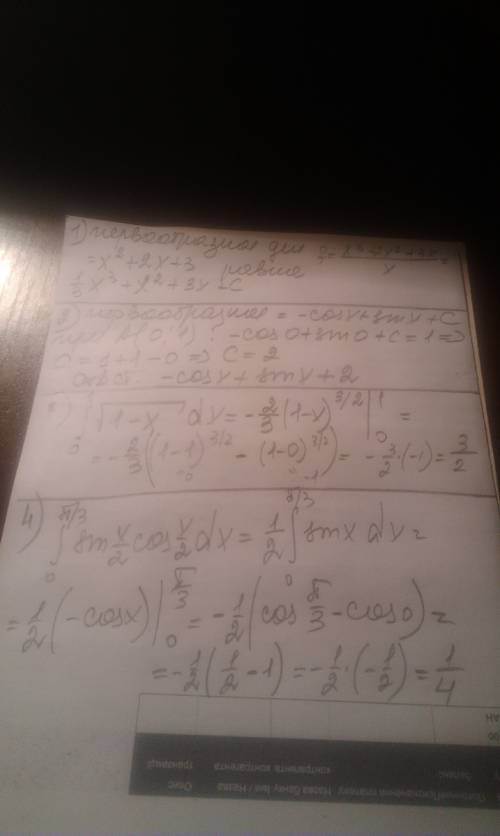 1) первообразная для y = (x³+2x²+3x)/x =
= x² + 2x + 3 равна
1/3 x³ + x² + 3x + C
2) первообразное = -cosx + sinx + C
: -cos0 + sin0 + C = 1 =>
C = 1 + 1 - 0 => C = 2
Ответ: -cosx + sinx + 2
∫₀¹ √(1-x) dx = -2/3 (1-x)^{3/2} |₀¹ =
= -2/3 ((1-1)^{3/2} - (1-0)^{3/2}) = -3/2 · (-1) = 3/2
4) ∫₀^{π/3} sin x/2 cos x/2 dx = 1/2 ∫₀^{π/3} sinx dx =
= 1/2 (-cosx) |₀^{π/3} = -1/2 (cos π/3 - cos0) =
= -1/2 (1/2 - 1) = -1/2 · (-1/2) = 1/4